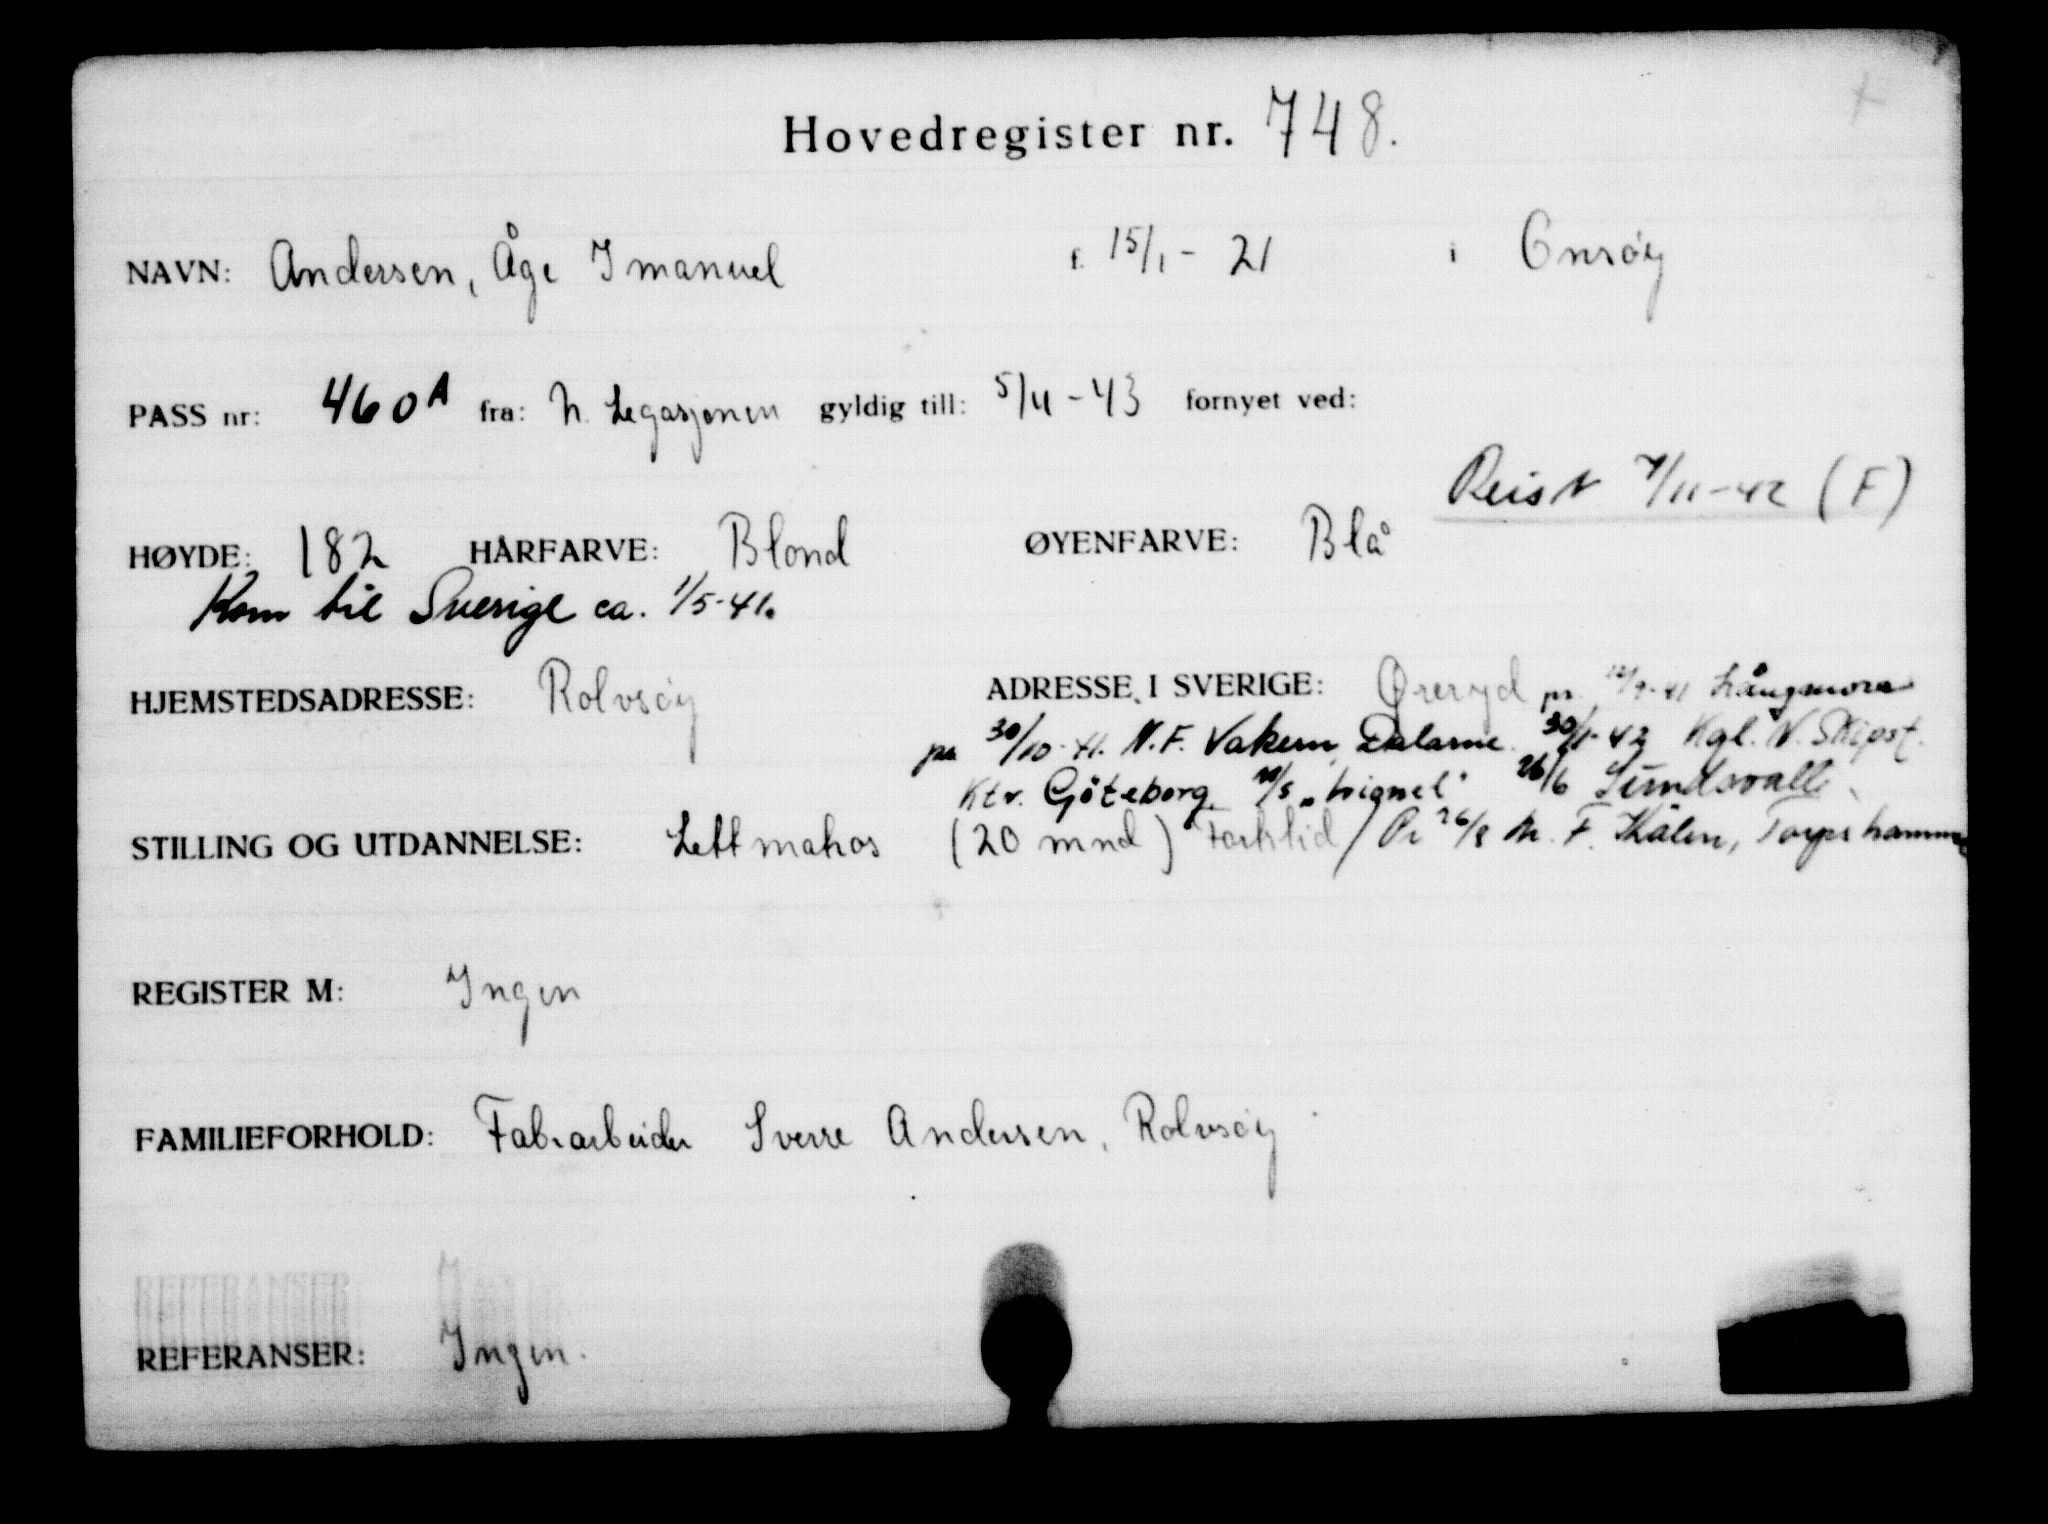 Hovedregister nr. 748.
NAVN: Andersen, Åge Imanuel f. 15/1 - 21 i Onsøy
PASS nr: 460A fra: N. Legasjonen gyldig till: 5/11 - 43 fornyet ved:
Reist 7/11-42 (F)
HØYDE: 182 HÅRFARVE: Blond ØYENFARVE: Blå
Kom til Sverige ca. 1/5-41.
HJEMSTEDSADRESSE: Rolvsøy ADRESSE I SVERIGE: Øreryd pr. 12/9-41 Långmora
pr 30/10-41. N.F. Vakern, Dalarne. 30/1-42 Kgl. N. Skipsf.
Ktr. Göteborg 26/6 Sundsvall
STILLING OG UTDANNELSE: Lettmatros (20 mnd) Fartstid / Pr 26/8 N. F. Kålen, Torpshammar
REGISTER M: Ingen
FAMILIEFORHOLD: Fabrarbeider Sverre Andersen, Rolvsøy
REFERANSER: Ingen.